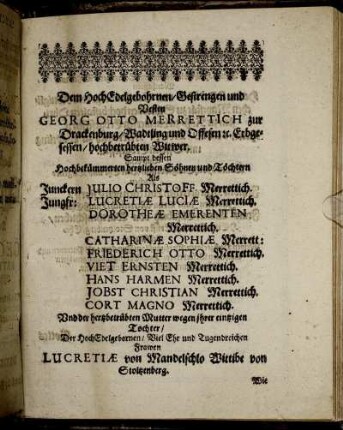 Dem HochEdelgebohrnen/Gestrengen und
Vesten
GEORG OTTO MERRETTICH zur
Drackenburg/Wadtling und Offesen ꝛc. Erbge-
sessen/hochbetrübten Witwer.
Sampt dessen
Hochbekümmerten hertzlieben Söhnen und Töchtern
Als
Junckern JULIO CHRISTOFF Merrettich.
Jungfr: LUCRETIÆ LUCIÆ Merrettich.
DOROTHEÆ EMERENTEN
Merrettich.
CATHARINÆ SOPHIÆ Merrett:
FRIEDERICH OTTO Merrettich.
VIET ERNSTEN Merrettich.
HANS HARMEN Merrettich.
JOBST CHRISTIAN Merrettich.
CORT MAGNO Merrettich.
Und der hertzbetrübten Mutter wegen jhrer eintzigen
Tochter/
Der HochEdelgebornen/Viel Ehr und Tugendreichen
Frawen
LUCRETIÆ von Mandelschlo Wittibe von
Stoltzenberg.
Wie